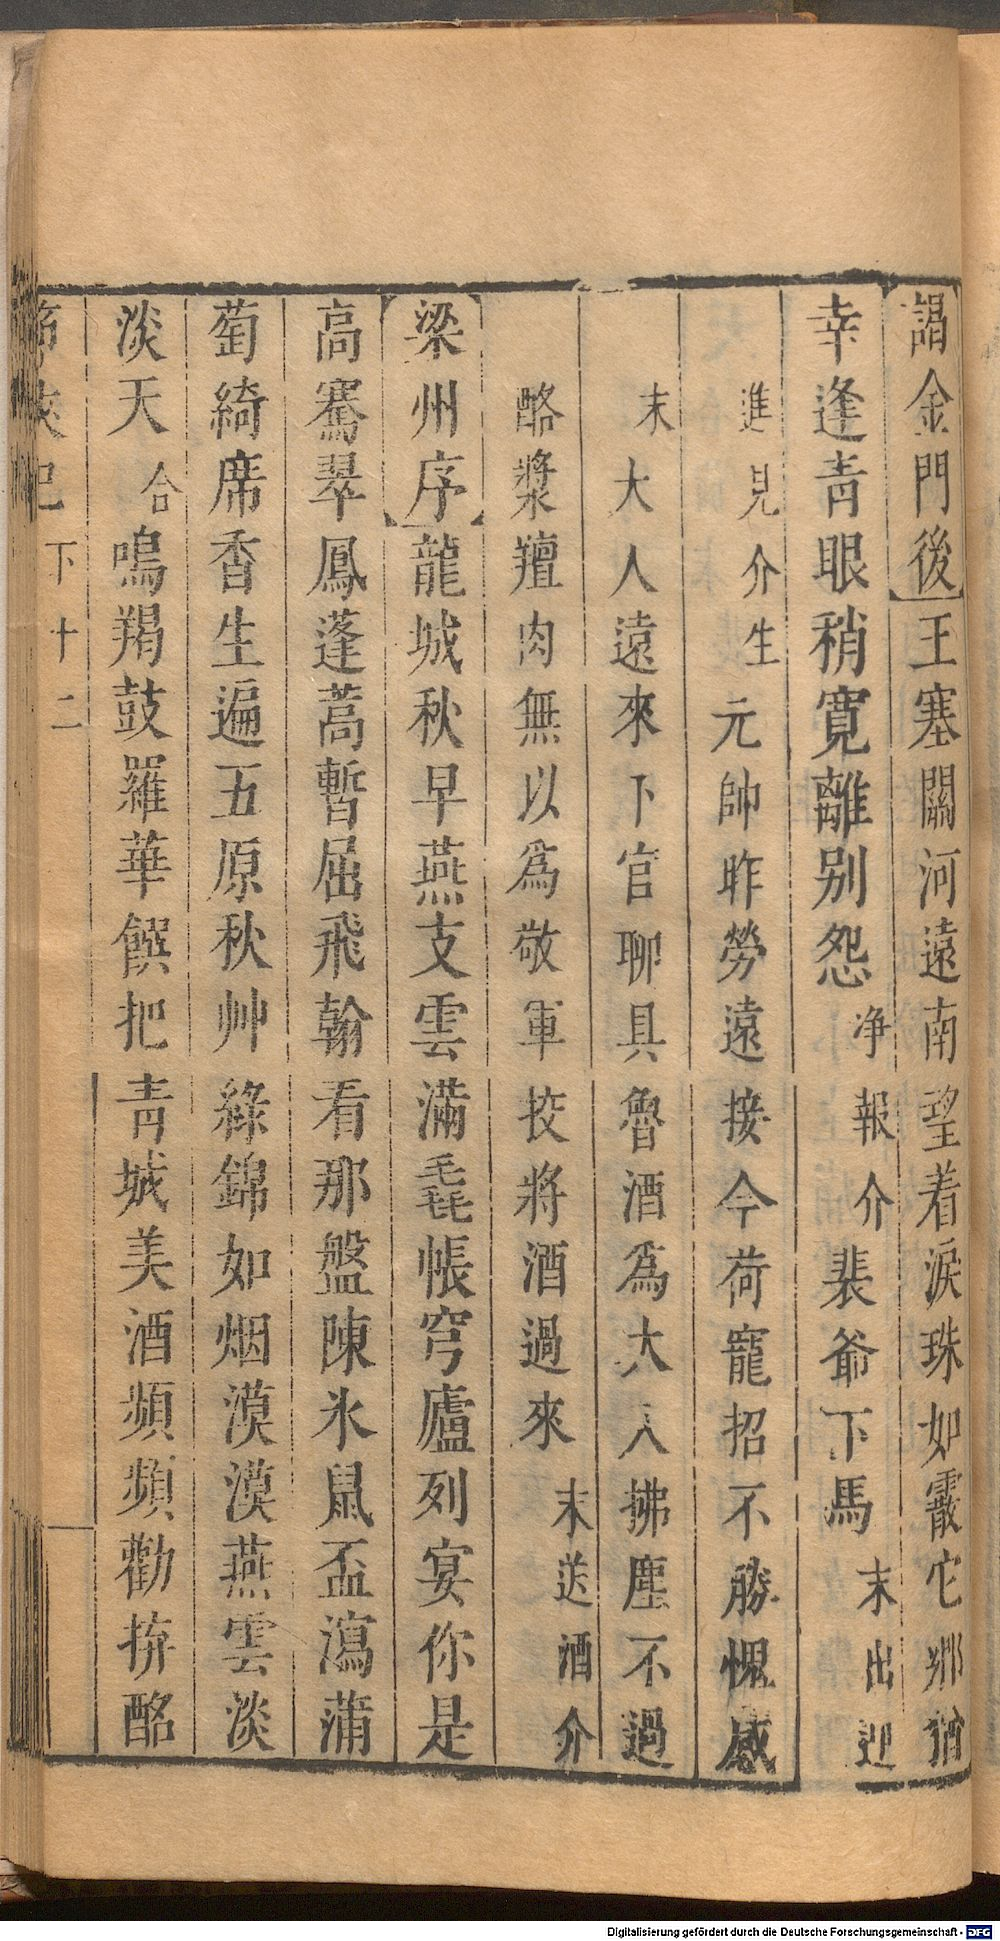 謁金門後王塞關河遠南望着淚珠如霰它鄉猶
幸逢青眼稍寬離別怨净報介裴爺下馬末出迎
進見介生元帥昨勞遠接今荷寵招不勝愧感
末大人遠來下官聊具魯酒爲大人拂塵不過
酪漿羶肉無以爲敬軍校將酒過來末送酒介
梁州序龍城秋早燕支雲滿毳帳穹廬列宴你是
高騫翠鳳蓬蒿暫屈飛翰看那盤陳氷鼠盃瀉蒲
萄綺席香生遍五原秋艸綠錦如烟漠漠燕雲淡
淡天合鳴羯鼓羅華饌把青城美酒頻頻勸拚酩
下十二
Digitalisierung gefördert durch die Deutsche Forschungsgemeinschaft - DFG